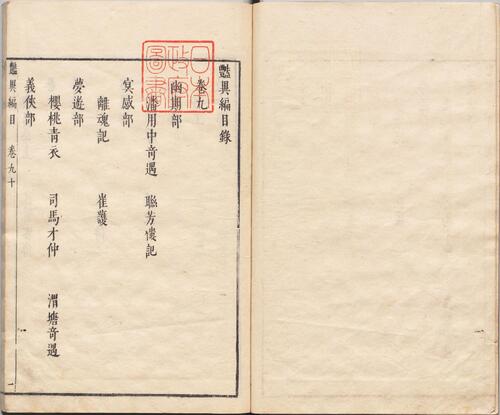 豔異編目錄
卷九
幽期部
潘用中奇遇　聯芳樓記
冥感部
離魂記　崔護
夢遊部
櫻桃青衣　司馬才仲　渭塘奇遇
義俠部
豔異編目　卷九十　一
日本
政府
圖書